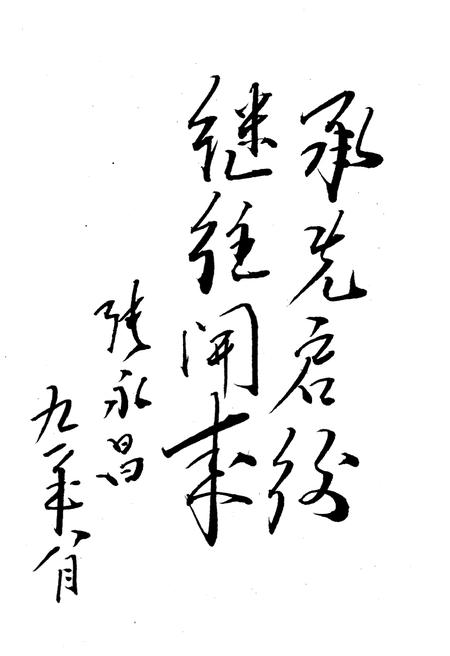 承先启後
继往开来
张永昌
九一年八月